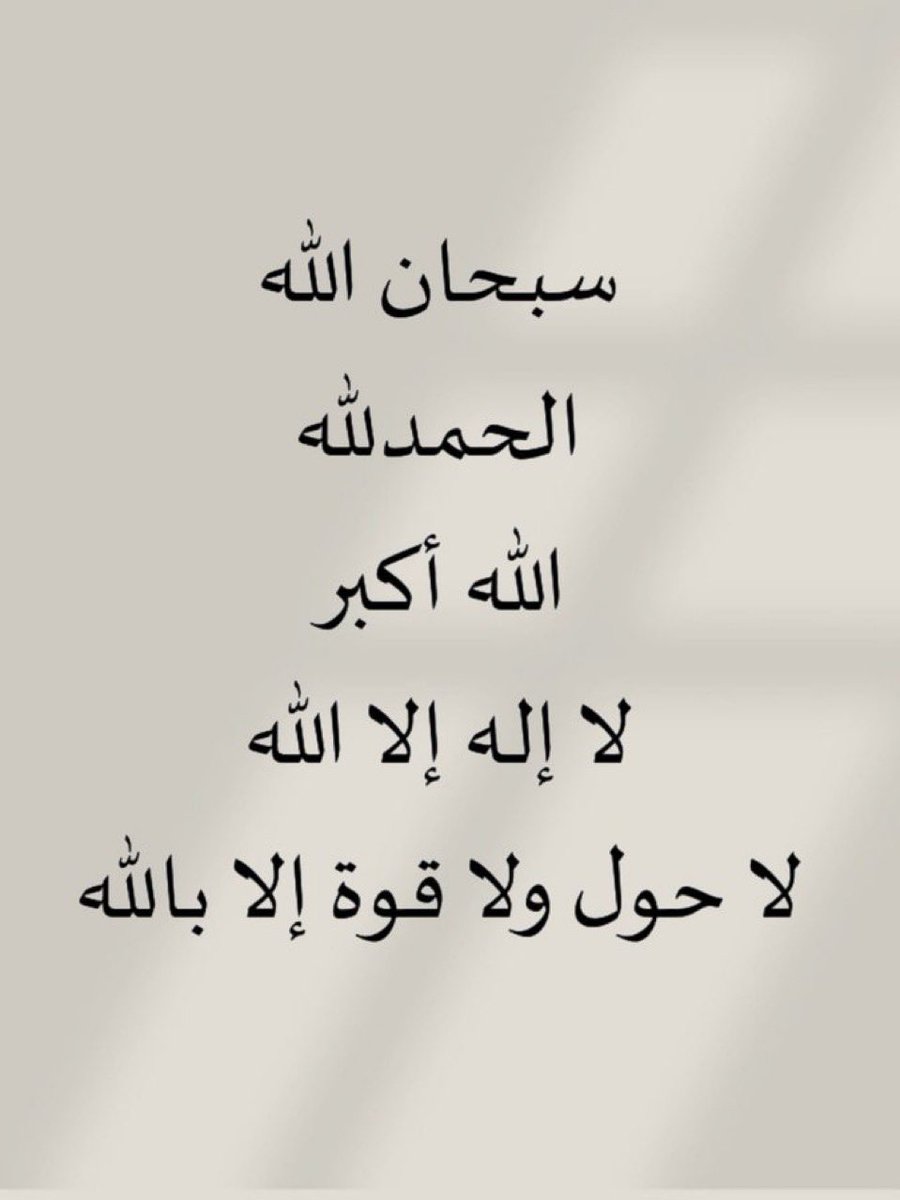 سبحان الله
الحمدلله
الله أكبر
لا إله إلا الله
لا حول ولا قوة إلا بالله